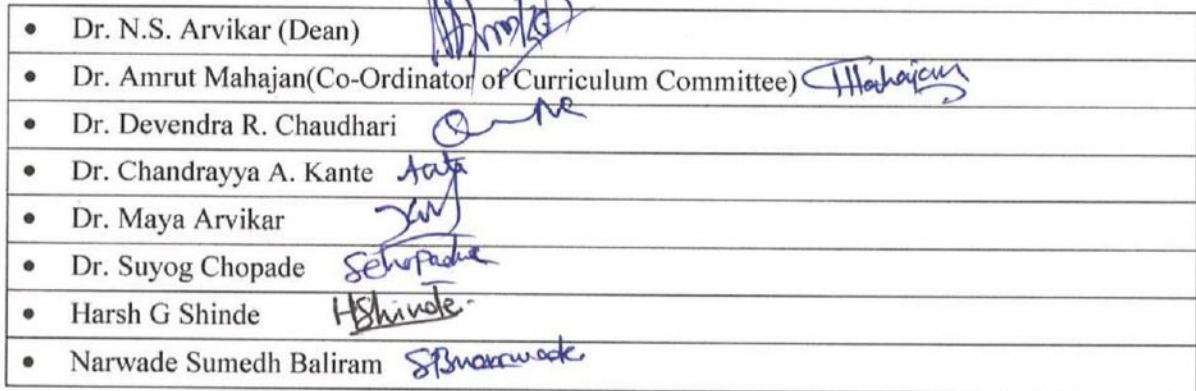 • Dr. N.S. Arvikar (Dean)
• Dr. Amrut Mahajan(Co-Ordinator of Curriculum Committee) Mahajan
• Dr. Devendra R. Chaudhari
• Dr. Chandrayya A. Kante
• Dr. Maya Arvikar
• Dr. Suyog Chopade Schopade
• Harsh G Shinde HShinde
• Narwade Sumedh Baliram SBnarwade